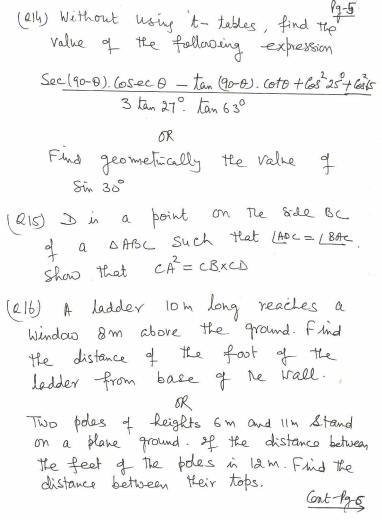 Pg-5
(Q14) Without using t- tables, find the
value of the following expression
Sec(90-θ). Cosec θ - tan (90-θ). Cotθ + Cos²25° + Cos²65
3 tan 27°. tan 63°
OR
Find geometrically the value of
Sin 30°
(Q15) D is a point on the side BC
of a ∆ABC such that ∠ADC = ∠BAC.
Show that CA² = CB×CD
(Q16) A ladder 10m long reaches a
window 8m above the ground. Find
the distance of the foot of the
ladder from base of the wall.
OR
Two poles of heights 6m and 11m stand
on a plane ground. If the distance between
the feet of the poles is 12m. Find the
distance between their tops.
Cont-Pg-6